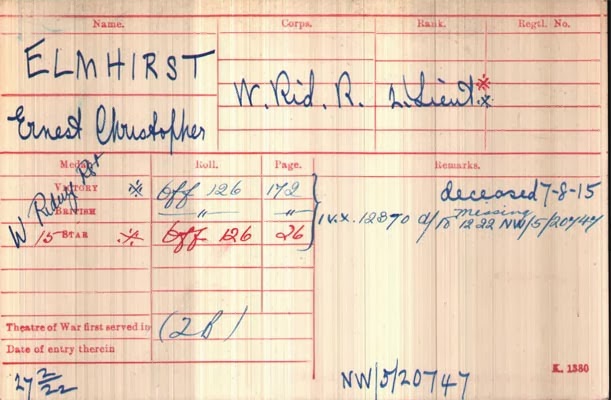 Name. Corps. Rank. Regtl. No.
ELMHIRST
W. Rid. R. 2/Lieut.
Ernest Christopher
Medal Roll. Page. Remarks.
VICTORY Off 126 172 deceased 7-8-15
BRITISH — " — — " — missing
IV.X. 12870 d/ 1222 NW/5/20747
15 STAR Off 126 26
W Riding Rgt
Theatre of War first served in (2B)
Date of entry therein
K. 1380
27 2/22 NW/5/20747